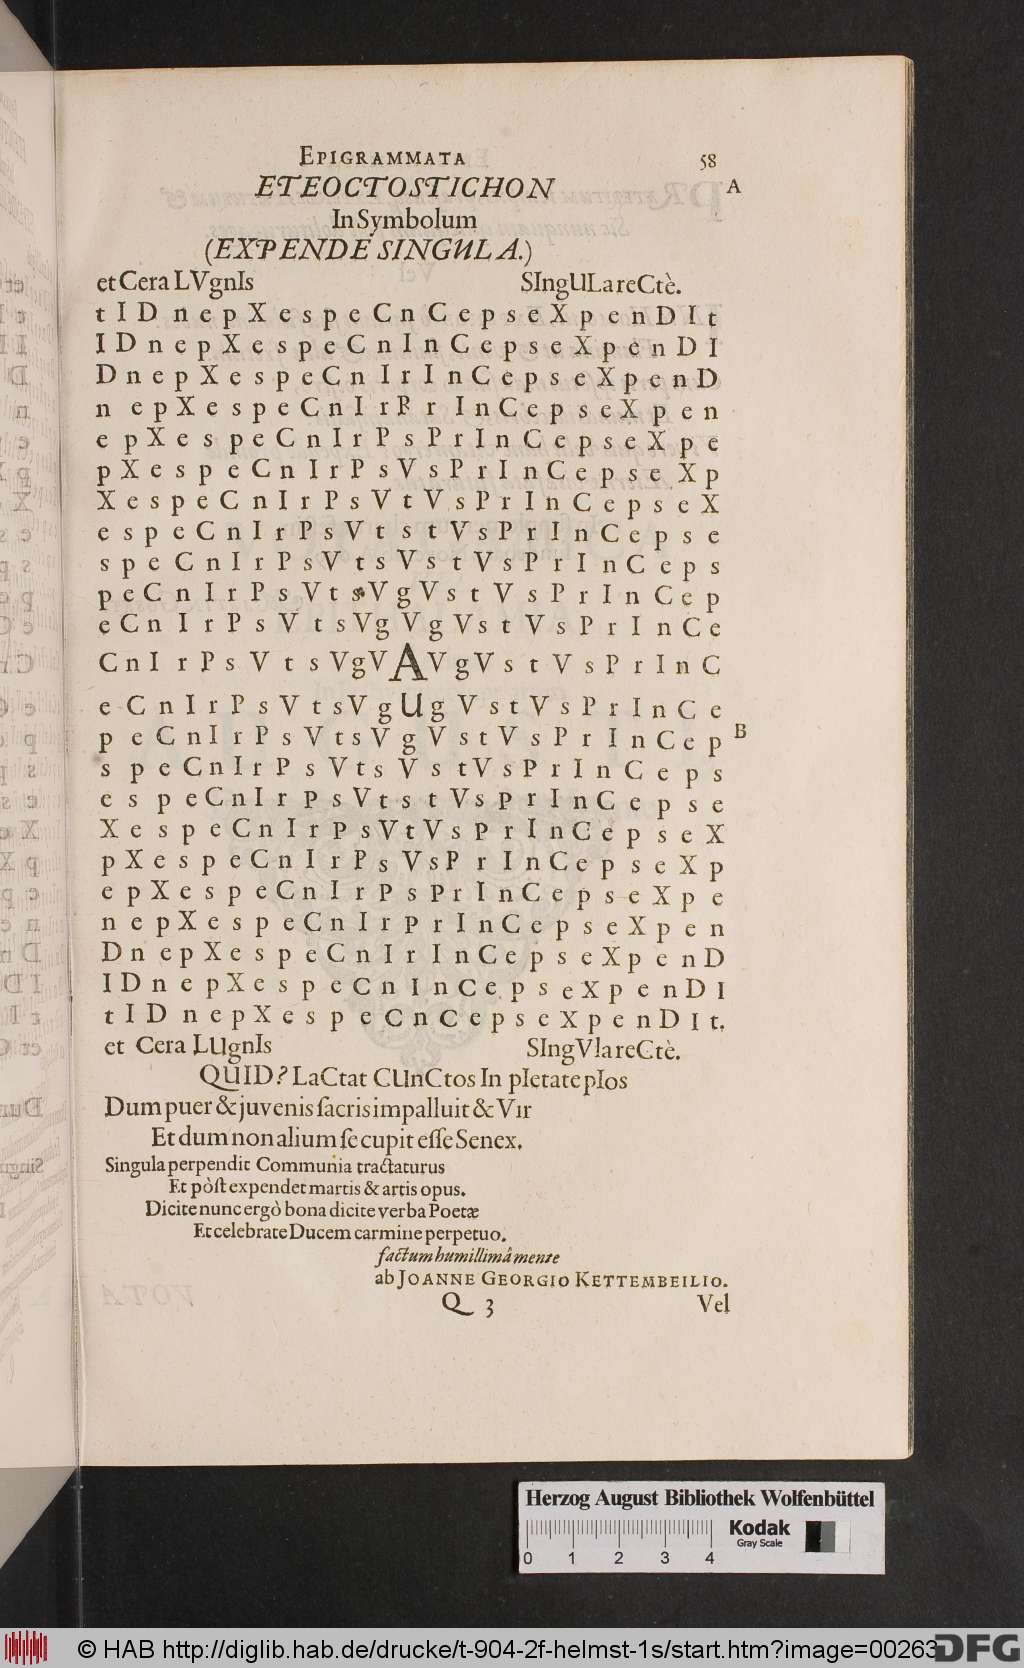 EPIGRAMMATA 58
ETEOCTOSTICHON A
In Symbolum
(EXPENDE SINGULA.)
et Cera LVgnIs SIngULareCtè.
t I D n e p X e s p e C n C e p s e X p e n D I t
I D n e p X e s p e C n I n C e p s e X p e n D I
D n e p X e s p e C n I r I n C e p s e X p e n D
n e p X e s p e C n I r P r I n C e p s e X p e n
e p X e s p e C n I r P s P r I n C e p s e X p e
p X e s p e C n I r P s V s P r I n C e p s e X p
X e s p e C n I r P s V t V s P r I n C e p s e X
e s p e C n I r P s V t s t V s P r I n C e p s e
s p e C n I r P s V t s V s t V s P r I n C e p s
p e C n I r P s V t s V g V s t V s P r I n C e p
e C n I r P s V t s V g V g V s t V s P r I n C e
C n I r P s V t s V g V A V g V s t V s P r I n C
e C n I r P s V t s V g U g V s t V s P r I n C e
p e C n I r P s V t s V g V s t V s P r I n C e p B
s p e C n I r P s V t s V s t V s P r I n C e p s
e s p e C n I r P s V t s t V s P r I n C e p s e
X e s p e C n I r P s V t V s P r I n C e p s e X
p X e s p e C n I r P s V s P r I n C e p s e X p
e p X e s p e C n I r P s P r I n C e p s e X p e
n e p X e s p e C n I r P r I n C e p s e X p e n
D n e p X e s p e C n I r I n C e p s e X p e n D
I D n e p X e s p e C n I n C e p s e X p e n D I
t I D n e p X e s p e C n C e p s e X p e n D I t.
et Cera LUgnIs SIngVlareCtè.
QUID? LaCtat CUnCtos In pIetate pIos
Dum puer & juvenis ſacris impalluit & Vir
Et dum non alium ſe cupit eſſe Senex.
Singula perpendit Communia tractaturus
Et pòſt expendet martis & artis opus.
Dicite nunc ergò bona dicite verba Poetæ
Et celebrate Ducem carmine perpetuo.
factum humillimâ mente
ab JOANNE GEORGIO KETTEMBEILIO.
Q 3 Vel
Herzog August Bibliothek Wolfenbüttel
Kodak
Gray Scale
0 1 2 3 4
© HAB http://diglib.hab.de/drucke/t-904-2f-helmst-1s/start.htm?image=00263
DFG